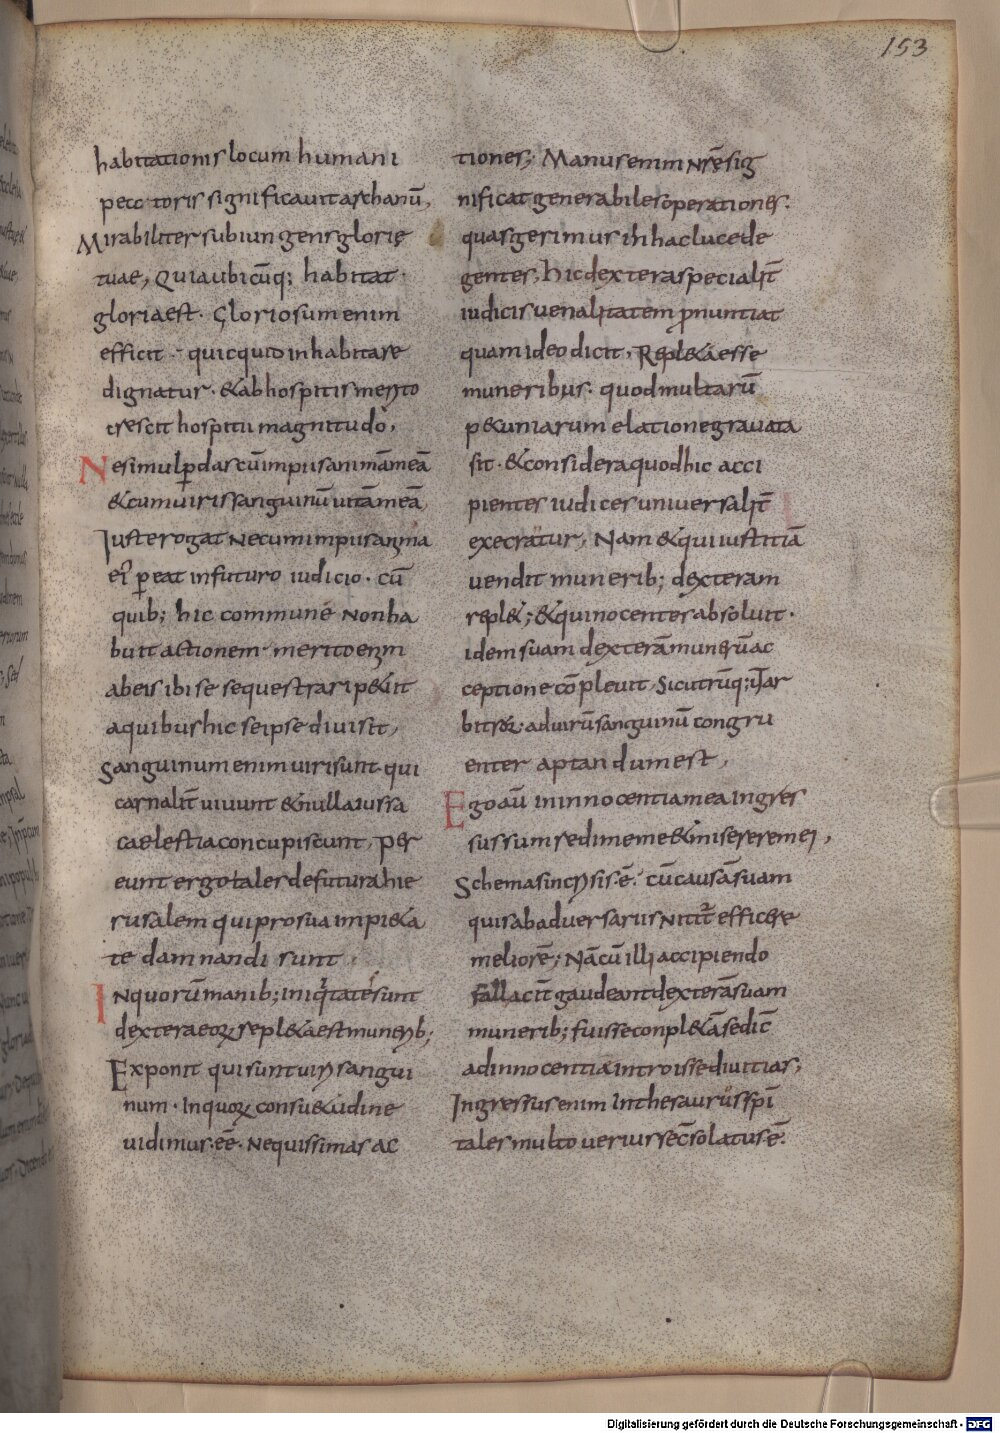 153
habitationis locum humani
pectoris significavit archanū,
Mirabiliter subiungens glorię
tuae, Quia ubicūq; habitat
gloria est. Gloriosum enim
efficit quicquid inhabitare
dignatur. & ab hospitis merito
crescit hospitii magnitudo,
Ne simul ꝑdas cū impiis animā meā
& cum viris sanguinū uitā meā,
Iuste rogat Ne cum impiis anima
ei' ꝑeat in futuro iudicio. cū
quib; hic commune Non ha
buit actionem merito enim
ab eis ibi se sequestrari p&iit
a quibus hic se ipse divisit,
Sanguinum enim uiri sunt qui
carnalit̄ uiuunt & nulla iussa
caelestia concupiscunt, per
eunt ergo tales de futura hie
rusalem qui pro sua impi&a
te damnandi sunt
In quorū manib; iniq'tates sunt
dextera eoꝝ repl&a est munerib;
Exponit qui sunt uiri sangui
num. In quoꝝ consu&udine
uidimus eē. Nequissimas ac
tiones; Manus enim nr̄ē sig
nificat generabiles operationes.
quas gerimus in hac luce de
gentes, hic dextera specialit̄
iudicis uenalitatem ꝓnuntiat
quam ideo dicit, Repl&a esse
muneribus. quod multarū
p&uniarum elatione gravata
sit. & considera quod hic acci
pientes iudices universalit̄
execratur, Nam & qui iustitiā
uendit munerib; dexteram
repl&; & qui nocentes absoluit.
idem suam dexterā munerū ac
ceptione cōpleuit, Sic utrūq; īt ar
bitror. ad uirū sanguinū congru
enter aptandum est,
Ego aū in innocentia mea ingres
sus sum redime me & miserere mei,
Schema sincrisis .ē. cū causā suam
quis ab adversariis Nitit̄ efficere
meliorē; Nā cū illi accipiendo
fallacit̄ gaudeant dexterā suam
munerib; fuisse conpl&ā se dic̄
ad innocentiā introisse divitias;
Ingressus enim In thesaurūs spī
tales multo uerius se c̄solatus ē.
Digitalisierung gefördert durch die Deutsche Forschungsgemeinschaft - DFG